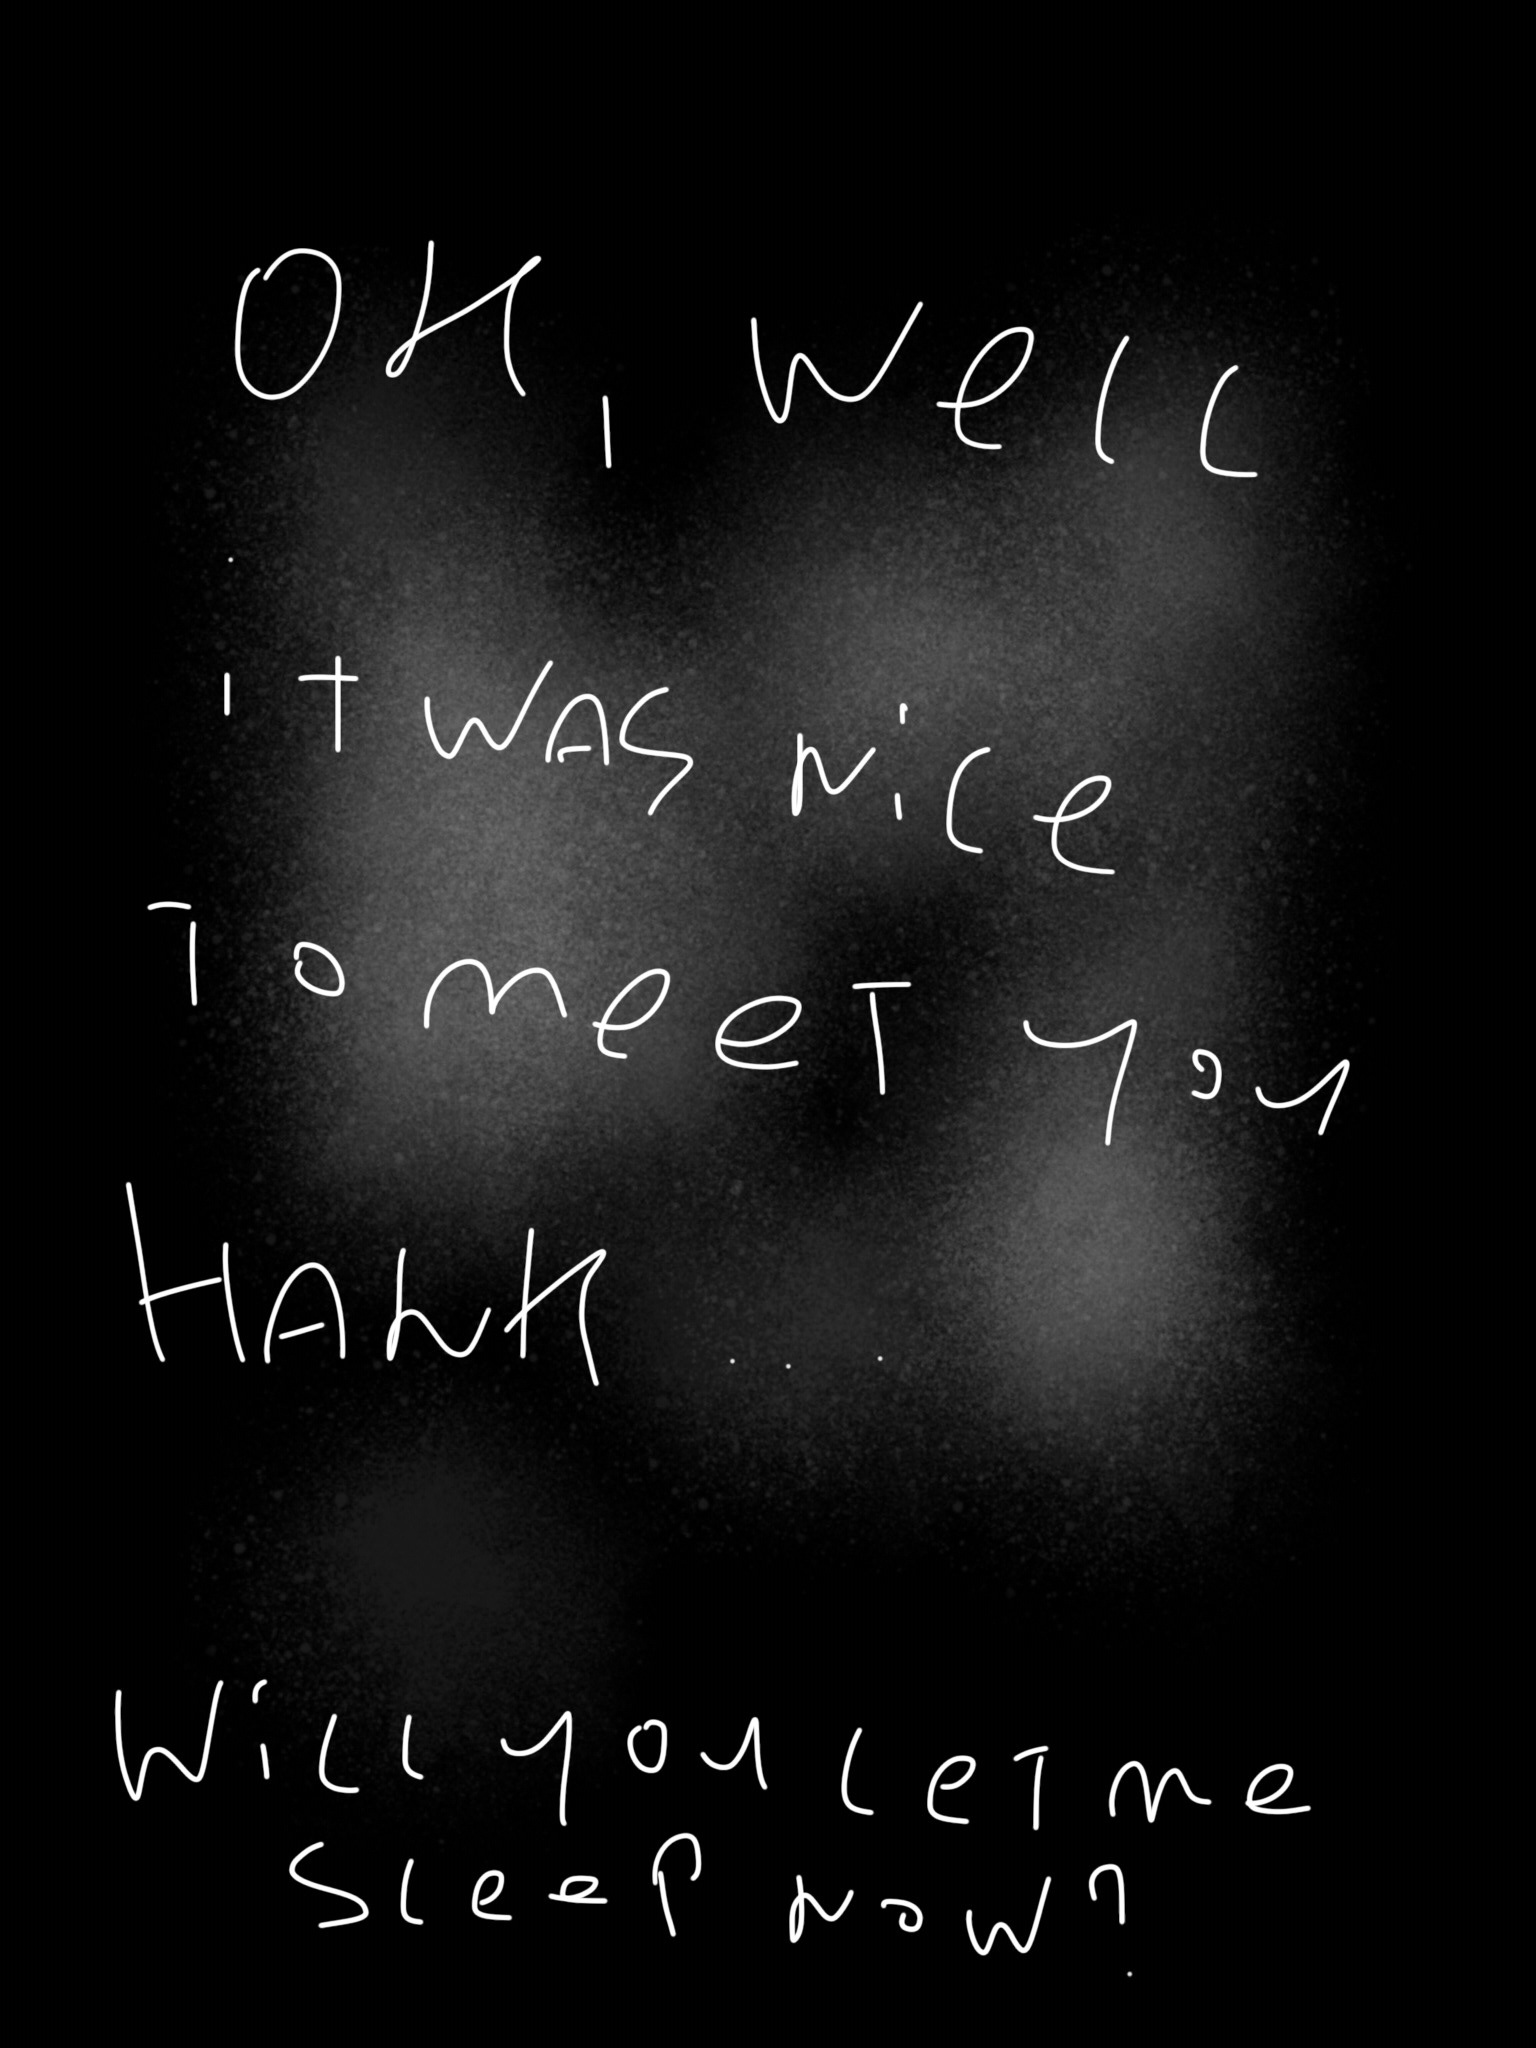 OH, Well
IT WAS Nice
To meeT you
HANK ...
Will you LeT me
Sleep Now?